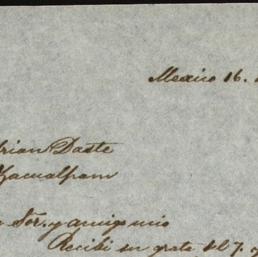 Mexico 16.
rian Daste
Zacualpam
Sõr. y amigo mio
Recibi su grata del 7.